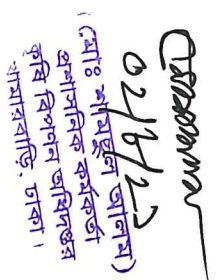 ০২/৮/২১
(মোঃ শামছুল আলম)
প্রশাসনিক কর্মকর্তা
কৃষি বিপণন অধিদপ্তর
খামারবাড়ি, ঢাকা।